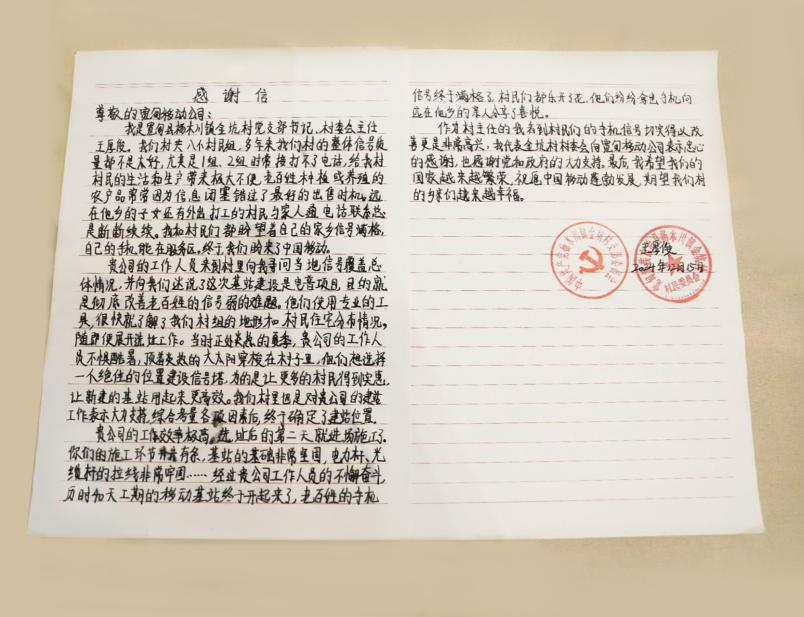 感谢信
尊敬的宽甸移动公司：
我是宽甸县杨木川镇金坑村党支部书记、村委会主任
王厚俊。我们村共八个村民组，多年来我们村的整体信号质
量都不是太好，尤其是1组、2组时常接打不了电话，给我村
村民的生活和生产带来极大不便，老百姓种植或养殖的
农产品常常因为信息闭塞错过了最好的出售时机。远
在他乡的子女还有外出打工的村民与家人通电话联系总
是断断续续。我和村民们都盼望着自己的家乡信号满格，
自己的手机能在服务区。终于我们盼来了中国移动。
贵公司的工作人员来到村里向我寻问当地信号覆盖总
体情况，并向我们达说了这次基站建设是电普项目，目的就
是彻底改善老百姓的信号弱的难题。他们使用专业的工
具，很快就了解了我们村组的地形和村民住宅分布情况。
随即便展开选址工作。当时正处炎热的夏季，贵公司的工作人
员不惧酷暑，顶着炎热的大太阳穿梭在村子里，他们想选择
一个绝佳的位置建设信号塔，为的是让更多的村民得到实惠，
让新建的基站用起来更高效。我们村里也是对贵公司的建站
工作表示大力支持，综合考量各项因素后，终于确定了建站位置。
贵公司的工作效率极高，选址后的第二天就进场施工了。
你们的施工环节井井有条，基站的基础非常坚固，电力杆、光
缆杆的拉线非常牢固……经过贵公司工作人员的不懈奋斗
历时40天工期的移动基站终于开起来了，老百姓的手机
信号终于满格了，村民们都乐开了花，他们纷纷拿出手机向
远在他乡的亲人分享了喜悦。
作为村主任的我看到村民们的手机信号切实得以改
善更是非常高兴，我代表金坑村村委会向宽甸移动公司表示衷心
的感谢，也感谢党和政府的大力支持。最后，我希望我们的
国家越来越繁荣，祝愿中国移动蓬勃发展，期望我们村
的乡亲们越来越幸福。
王厚俊
2024年12月15日